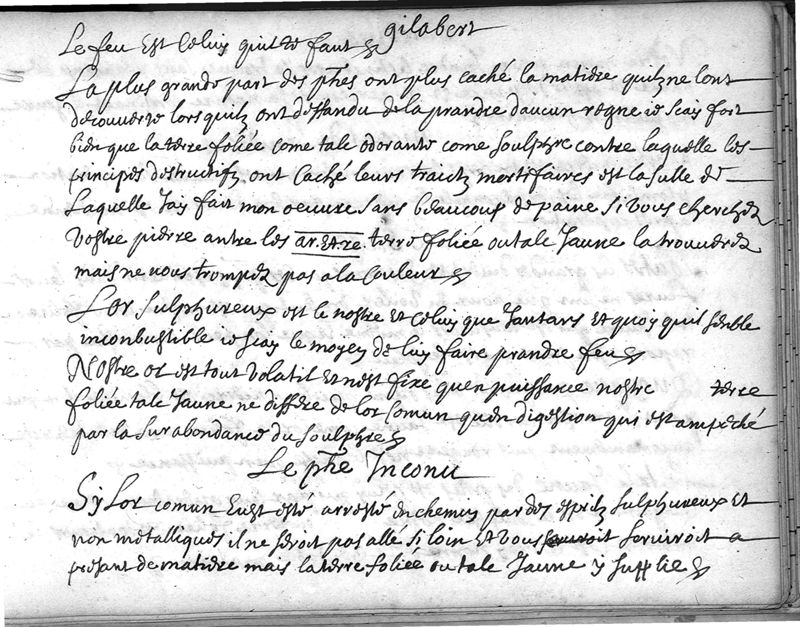 Le feu est Celuy quil te faut gilabert
La plus grande part des phes ont plus caché la matiere quilz ne lont
decouverte lors quilz ont deffandu de la prandre daucun regne ie scay fort
bien que la terre foliée come tale odorante come soulphre contre laquelle les
principes destructifz ont caché leurs traictz mortifaires est la sulle de
Laquelle Jay fait mon oeuure sans beaucoup de paine si vous cherchez
vostre pierre antre les ar. et. re. terre foliée ou tale Jaune la trouuerez
mais ne vous trompez pas a la Couleur
Lor sulphureux est le nostre et Celuy que Jantans et quoy quil semble
inconbustible ie scay le moyen de luy faire prandre feu
Nostre or est tout volatil et nest fixe quen puissance nostre terre
foliée tale Jaune ne differe de lor Comun quen digestion qui est ampeché
par la surabondance du soulphre
Le phe Inconu
Sy Lor comun eust esté arresté en chemin par des espritz sulphureux et
non metalliques il ne seroit pas allé si loin et vous seruiroit a
presant de matiere mais la terre foliée ou tale Jaune y supplie